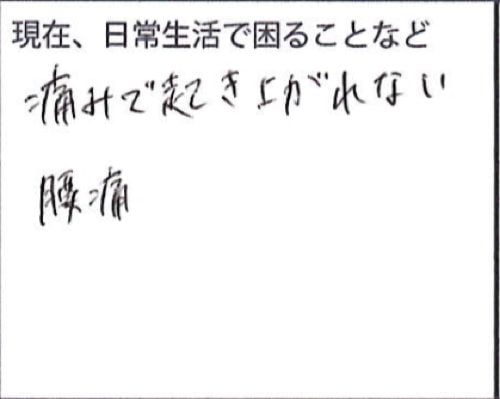 現在、日常生活で困ることなど
痛みで起き上がれない
腰痛